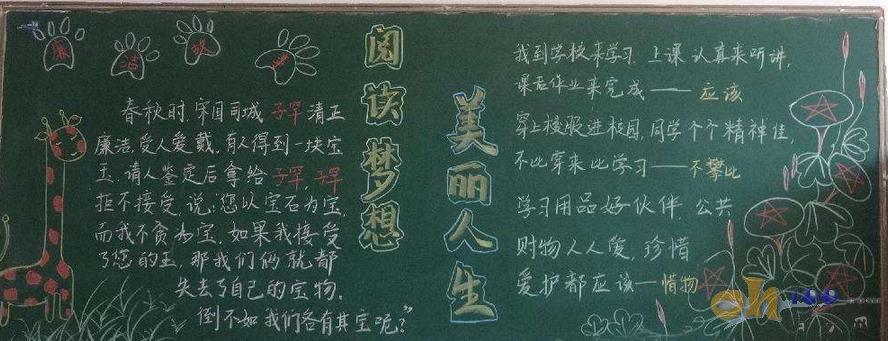 廉洁故事
阅读梦想
美丽人生
春秋时,宋国司城子罕清正
廉洁,受人爱戴,有人得到一块宝
玉,请人鉴定后拿给子罕,子罕
拒不接受,说:您以宝石为宝,
而我不贪为宝,如果我接受
了您的玉,那我们俩就都
失去了自己的宝物,
倒不如我们各有其宝呢?”
我到学校来学习,上课认真来听讲,
课后作业来完成——应该
穿上校服进校园,同学个个精神佳,
不比穿来比学习——不攀比
学习用品好伙伴,公共
财物人人爱,珍惜
爱护都应该—惜物